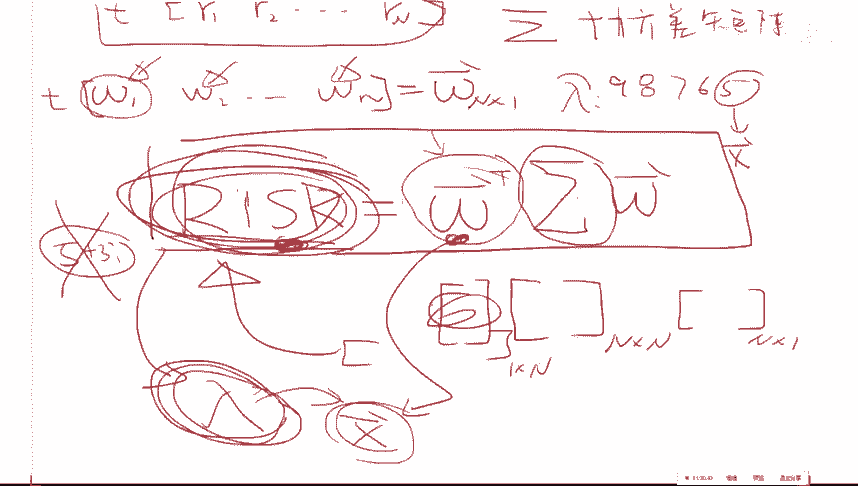 t [r₁ r₂ ... rₙ]
Σ 协方差矩阵
t [w₁ w₂ ... wₙ] = w⃗ₙₓ₁ λ: 9 8 7 6 5
x⃗
RISK = w⃗ᵀ Σ w⃗
5+3i
[ ]₁ₓₙ [ ]ₙₓₙ [ ]ₙₓ₁
λ x⃗